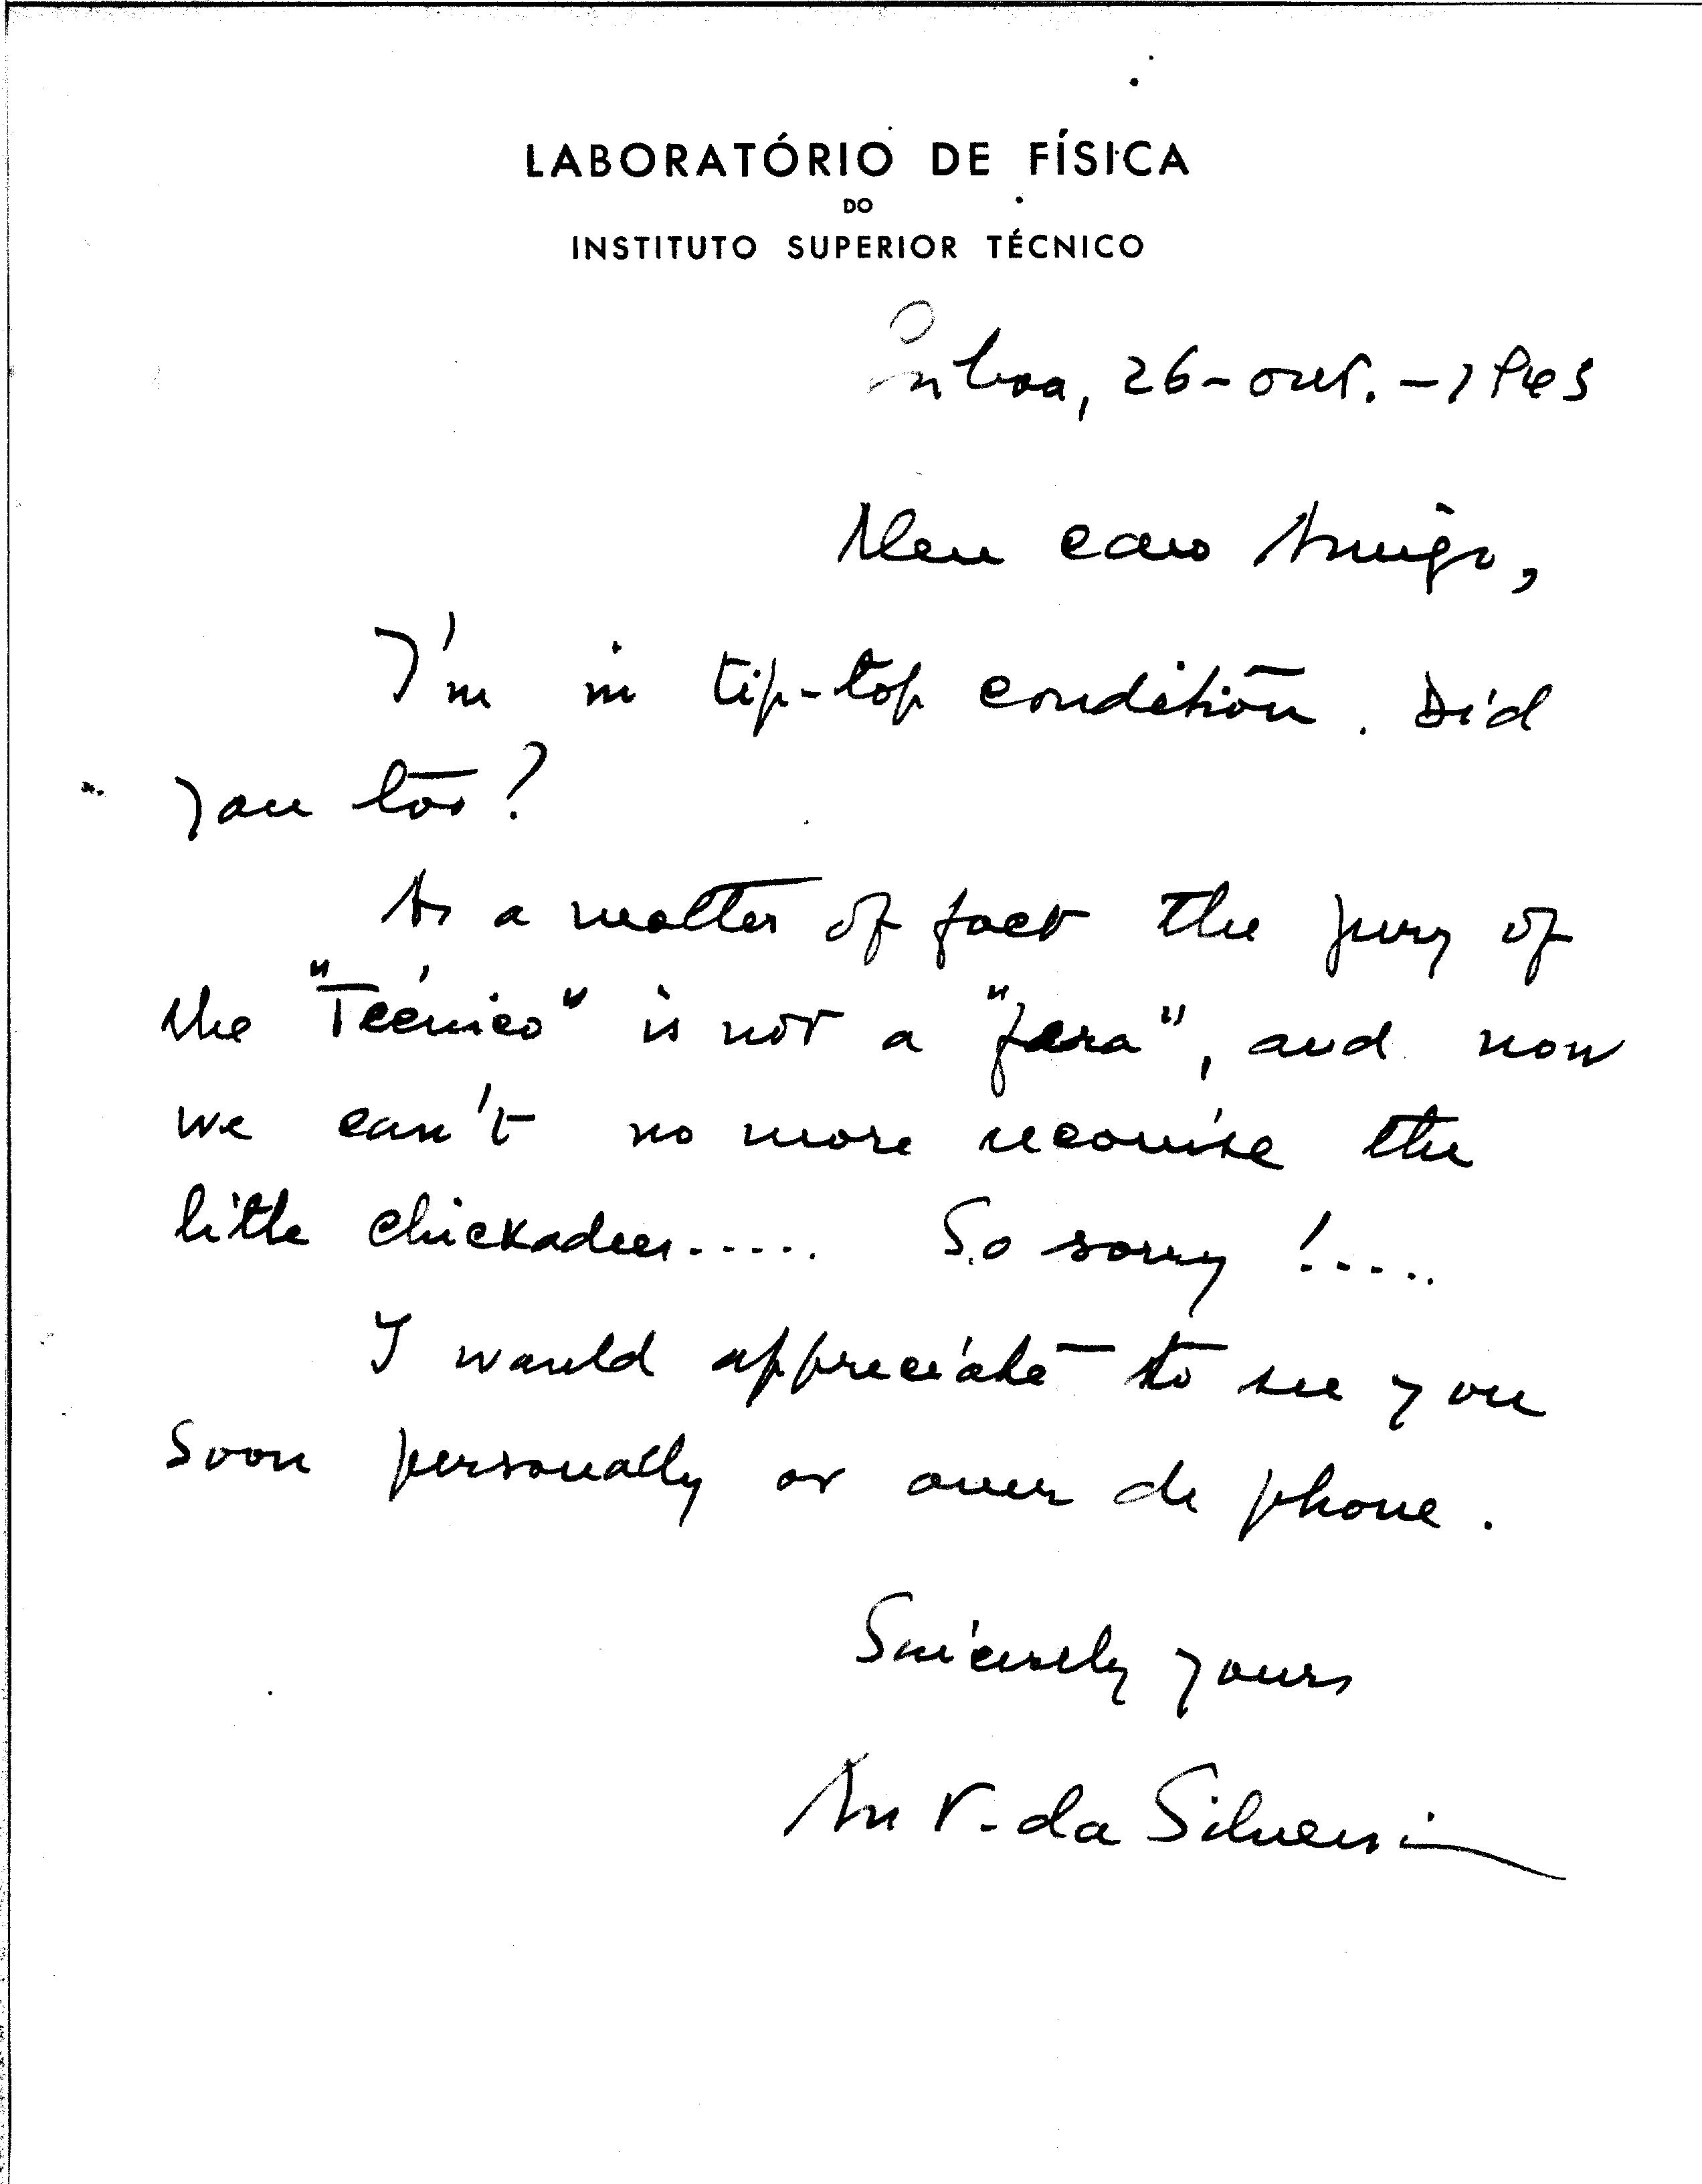 LABORATÓRIO DE FÍSICA
DO
INSTITUTO SUPERIOR TÉCNICO
Lisboa, 26-out.-1943
Meu caro Amigo,
I'm in tip-top condition. Did
you too?
As a matter of fact the jury of
the "Técnico" is not a "fera", and now
we can't no more reconise the
little chickadees..... So sorry!.....
I would appreciate to see you
soon personally or over de phone.
Sincerely yours
Ant. da Silveira